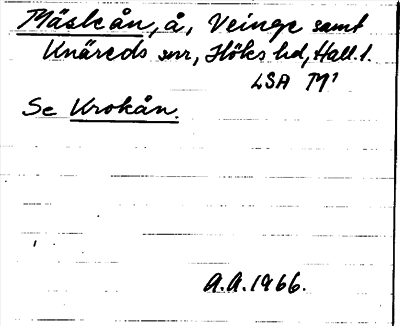 Mäskån, å, Veinge samt
Knäreds snr, Höks hd, Hall. l.
LSA M¹
Se Krokån.
A.A. 1966.